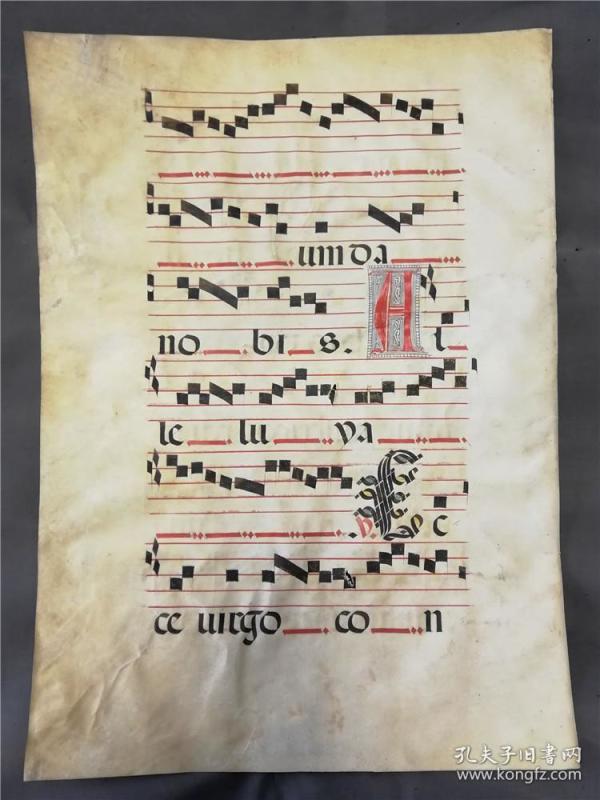 um da
no bi s. A l
le lu ya
℣. E c
ce uirgo co n
孔夫子旧書网
www.kongfz.com